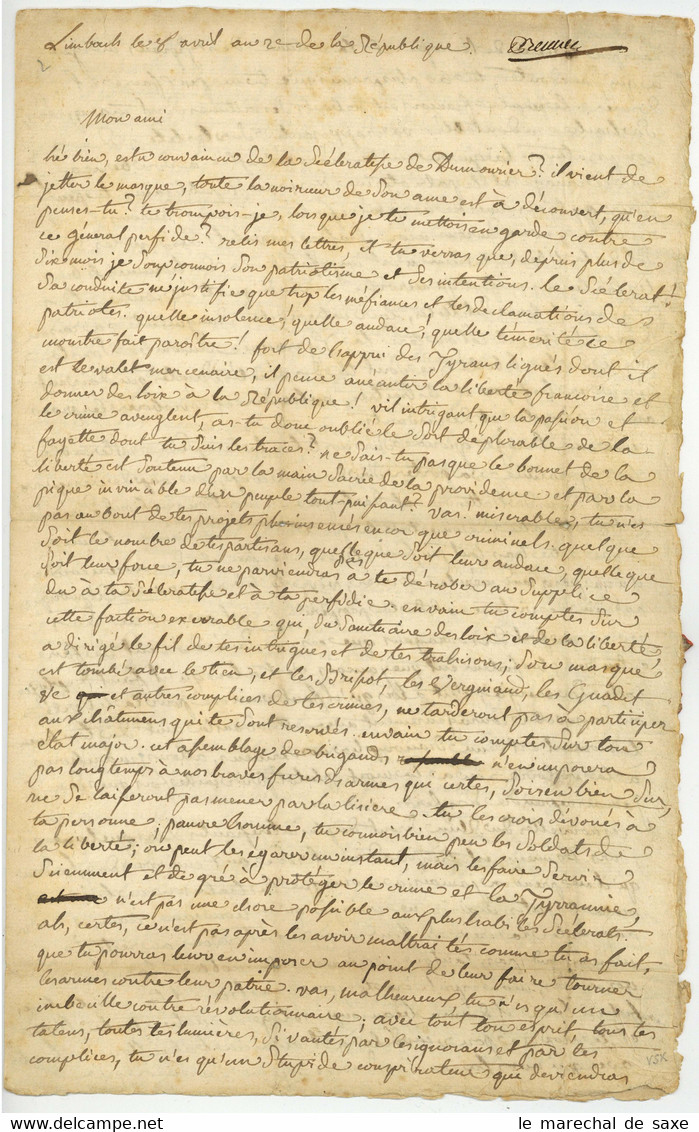 Limbach le 8 avril an 2e de la République.
2
Mon ami
hé bien, es-tu convaincu de la Scélératesse de Dumourier? il vient de
jetter le masque, toute la noirceur de son ame est à découvert, qu'en
penses-tu? te trompois-je, lorsque je te mettois en garde contre
ce général perfide? relis mes lettres, et tu verras que, depuis plus de
Six mois je soupçonnois son patriotisme et ses intentions. le Scélérat!
Sa conduite ne justifie que trop les méfiances et les déclamations des
patriotes. quelle insolence! quelle audace! quelle témérité ce
monstre fait paroître! fort de l'appui des Tyrans ligués dont il
est le valet mercenaire, il pense anéantir la liberté françoise et
donner des loix à la République! vil intrigant que la passion et
le crime aveuglent, as-tu donc oublié le sort déplorable de la
fayette dont tu suis les traces? ne sais-tu pas que le bonnet de la
liberté est soutenu par la main sacrée de la providence et par la
pique invincible d'un peuple tout puissant? vas! miserable, tu n'es
pas au bout de tes projets plus insensés encor que criminels. quelque
soit le nombre de tes partisans, quelle que soit leur audace, quelle que
soit leur force, tu ne parviendras pas à te dérober au supplice
du à ta Scélératesse et à ta perfidie. en vain tu comptes sur
cette faction execrable qui, du sanctuaire des loix et de la liberté,
a dirigé le fil de tes intrigues et de tes trahisons; son masque
est tombé avec le tien, et les Brissot, les Vergniaud, les Guadet
et autres complices de tes crimes, ne tarderont pas à participer
aux châtimens qui te sont reservés. en vain tu comptes sur ton
état major. cet assemblage de brigands n'en imposera
pas longtemps à nos braves freres d'armes qui certes, sois en bien sur,
ne se laisseront pas mener par la lisiere. tu les crois dévoués à
ta personne; pauvre homme, tu connois bien peu les Soldats de
la liberté; on peut les égarer un instant, mais les faire servir
Sciemment et de gré à protéger le crime et la Tyrannie,
n'est pas une chose possible aux plus habiles Scélérats.
ah, certes, ce n'est pas après les avoir maltraités comme tu as fait,
que tu pourras leur en imposer au point de leur faire tourner
les armes contre leur patrie. vas, malheureux, tu n'es qu'un
imbecille contre révolutionnaire; avec tout ton esprit, tous tes
talens, toutes tes lumières, si vantés par les ignorans et par tes
complices, tu n'es qu'un stupide conspirateur qui deviendras
le marechal de saxe